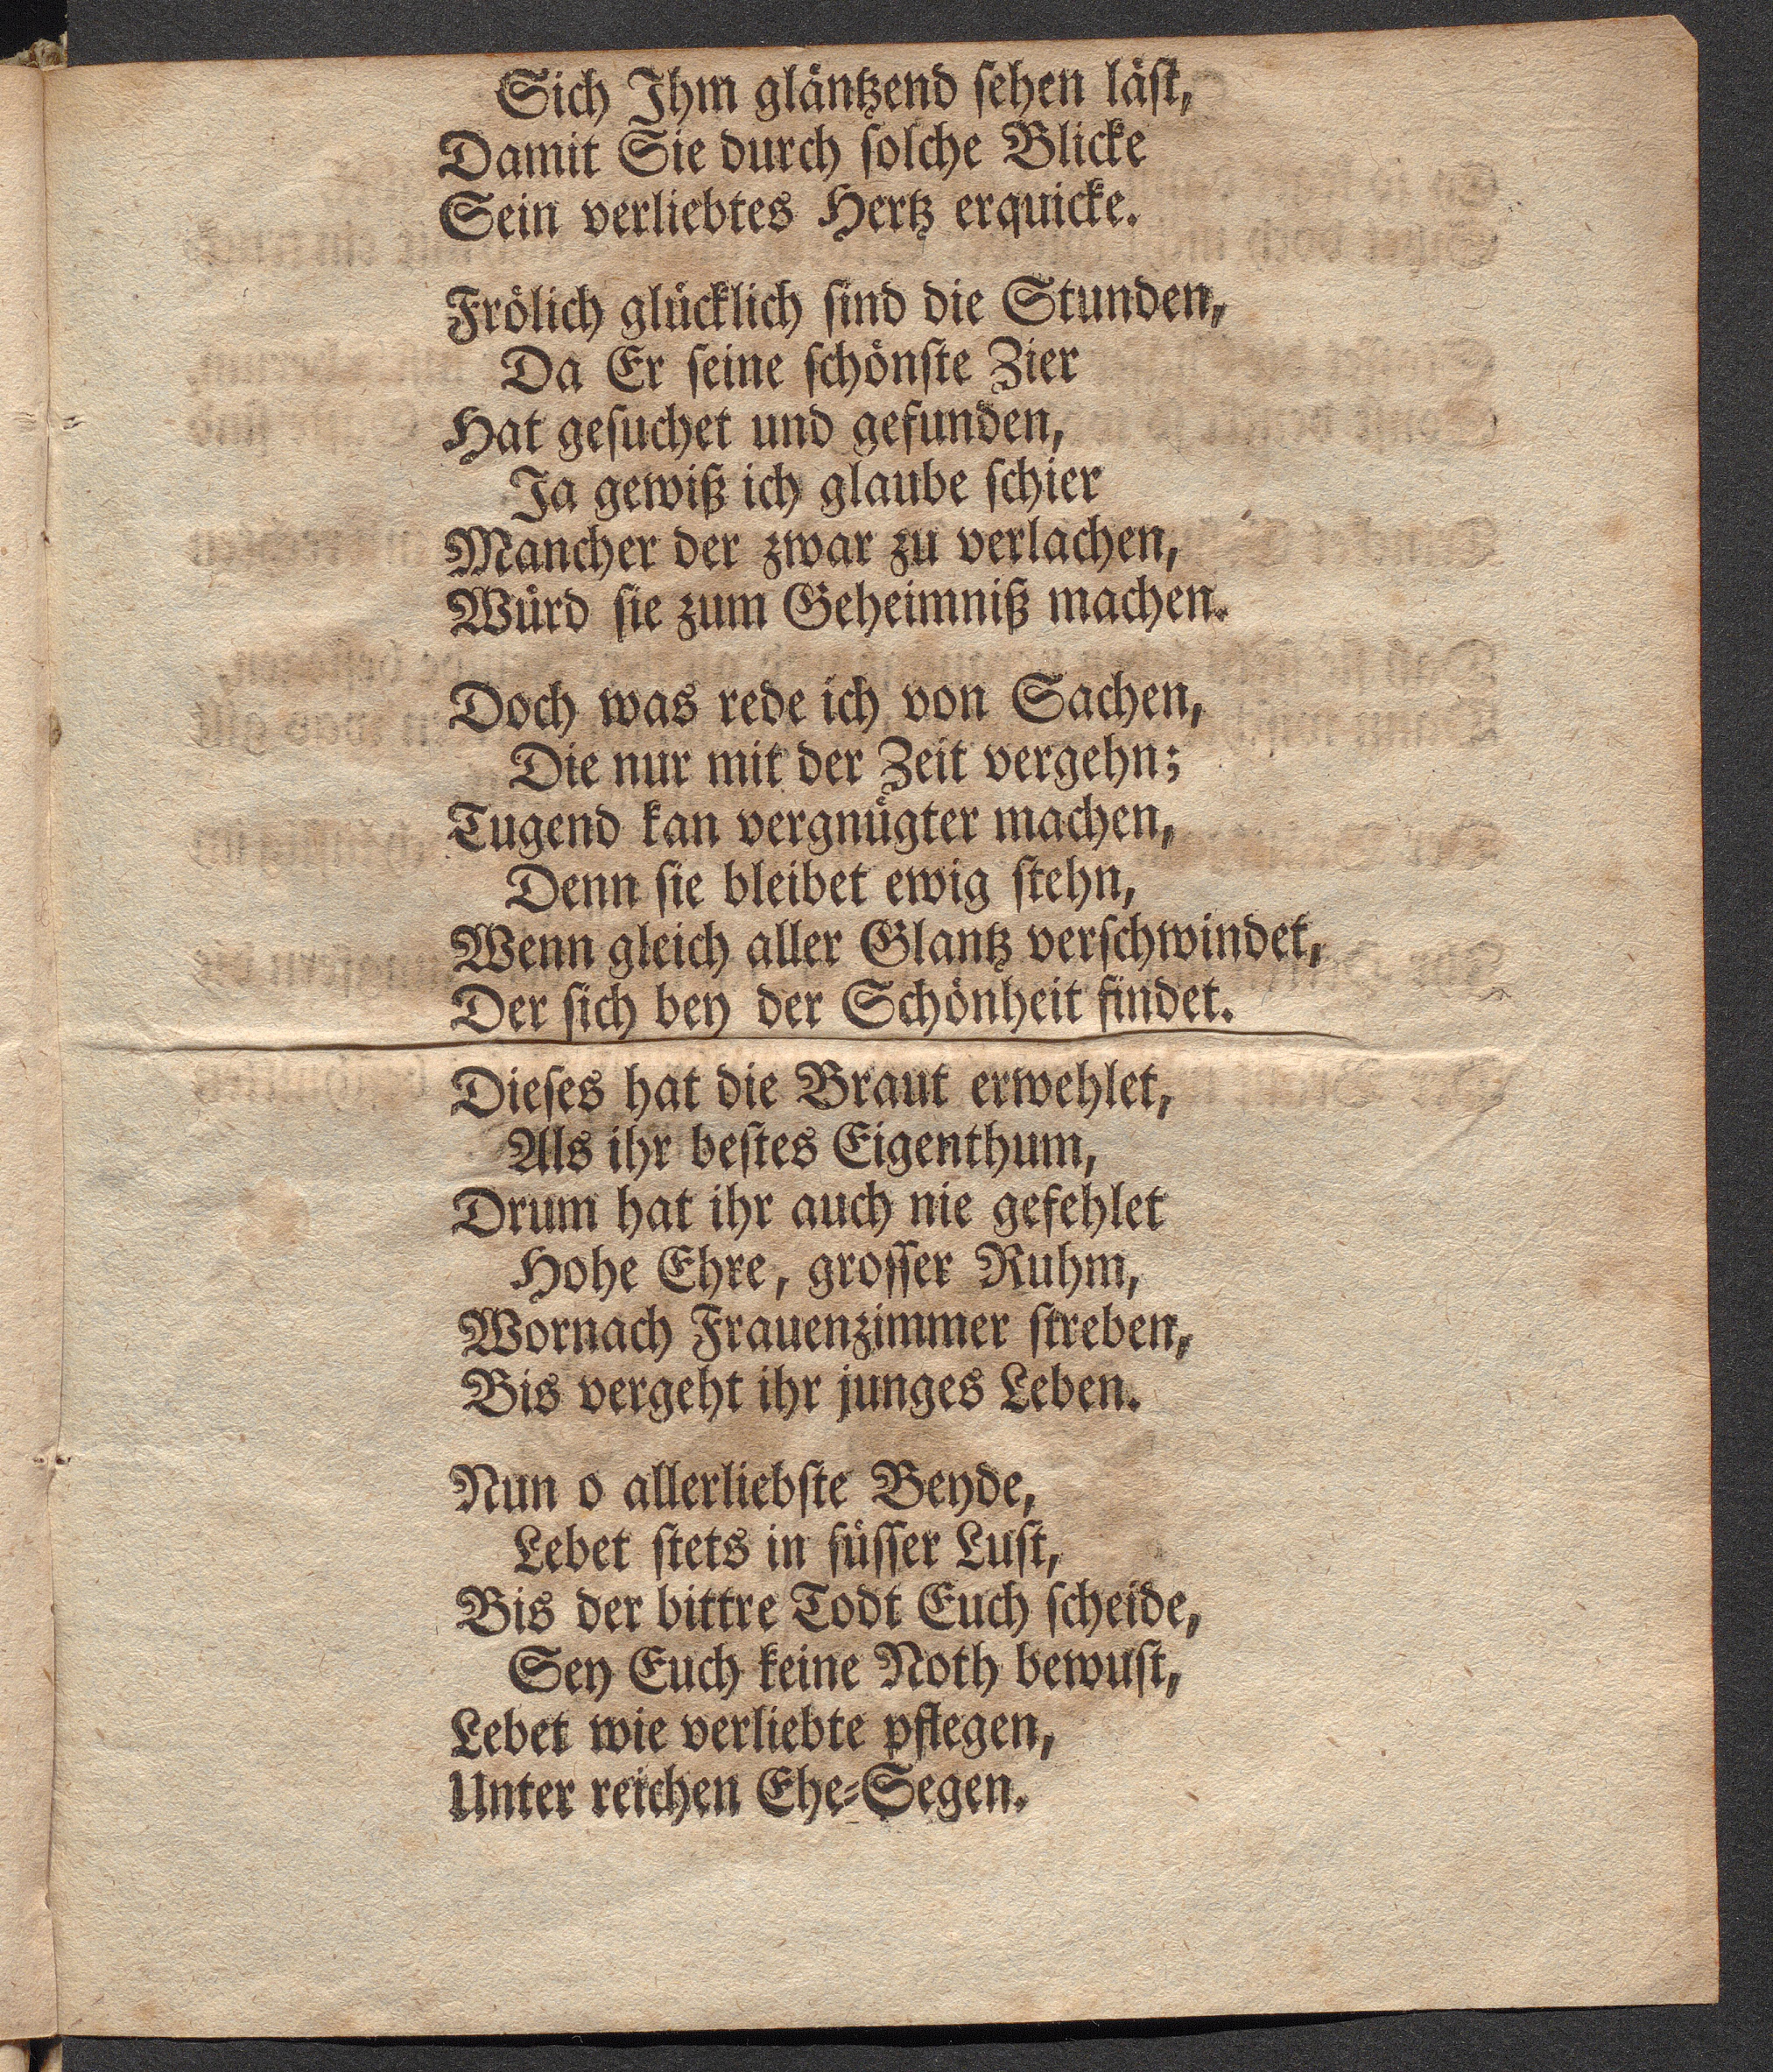 Sich Ihm gläntzend sehen läst,
Damit Sie durch solche Blicke
Sein verliebtes Hertz erquicke.
Frölich glücklich sind die Stunden,
Da Er seine schönste Zier
Hat gesuchet und gefunden,
Ja gewiß ich glaube schier
Mancher der zwar zu verlachen,
Würd sie zum Geheimniß machen.
Doch was rede ich von Sachen,
Die nur mit der Zeit vergehn;
Tugend kan vergnügter machen,
Denn sie bleibet ewig stehn,
Wenn gleich aller Glantz verschwindet,
Der sich bey der Schönheit findet.
Dieses hat die Braut erwehlet,
Als ihr bestes Eigenthum,
Drum hat ihr auch nie gefehlet
Hohe Ehre, grosser Ruhm,
Wornach Frauenzimmer streben,
Bis vergeht ihr junges Leben.
Nun o allerliebste Beyde,
Lebet stets in süsser Lust,
Bis der bittre Todt Euch scheide,
Sey Euch keine Noth bewust,
Lebet wie verliebte pflegen,
Unter reichen Ehe-Segen.